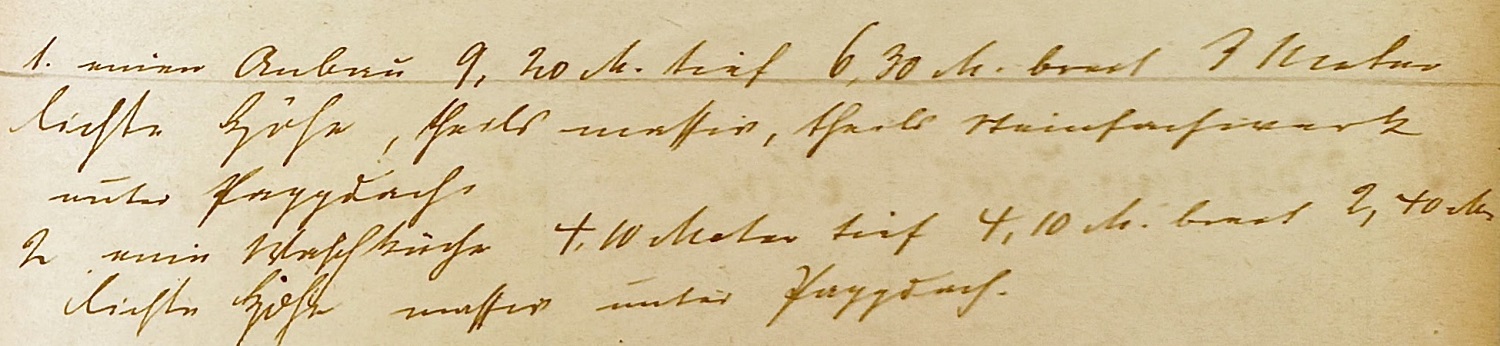 1. einen Anbau 9,20 M. tief 6,30 M. breit 3 Meter
lichte Höhe, theils massiv, theils Steinfachwerk
unter Pappdach.
2 eine Waschküche 4,10 Meter tief 4,10 M. breit 2,40 M.
lichte Höhe massiv unter Pappdach.